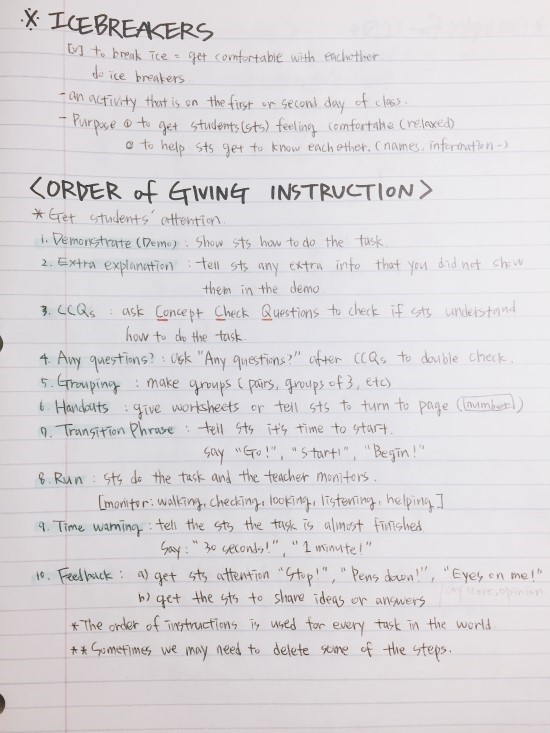 ※ ICEBREAKERS
[v] to break ice = get comfortable with eachother
do ice breakers
- an activity that is on the first or second day of class.
- Purpose ① to get students(sts) feeling comfortable (relaxed)
② to help sts get to know each other. (names, information ~)
<ORDER of GIVING INSTRUCTION>
* Get students' attention.
1. Demonstrate (Demo) : Show sts how to do the task.
2. Extra explanation : tell sts any extra info that you did not show
them in the demo
3. CCQs : ask Concept Check Questions to check if sts understand
how to do the task.
4. Any questions? : ask "Any questions?" after CCQs to double check.
5. Grouping : make groups (pairs, groups of 3, etc)
6. Handouts : give worksheets or tell sts to turn to page (number)
7. Transition Phrase : tell sts it's time to start.
say "Go!", "Start!", "Begin!"
8. Run : sts do the task and the teacher monitors.
[monitor : walking, checking, looking, listening, helping]
9. Time warning : tell the sts the task is almost finished
Say : "30 seconds!", "1 minute!"
10. Feedback : a) get sts attention "Stop!", "Pens down!", "Eyes on me!"
b) get the sts to share ideas or answers
* The order of instructions is used for every task in the world
** Sometimes we may need to delete some of the steps.